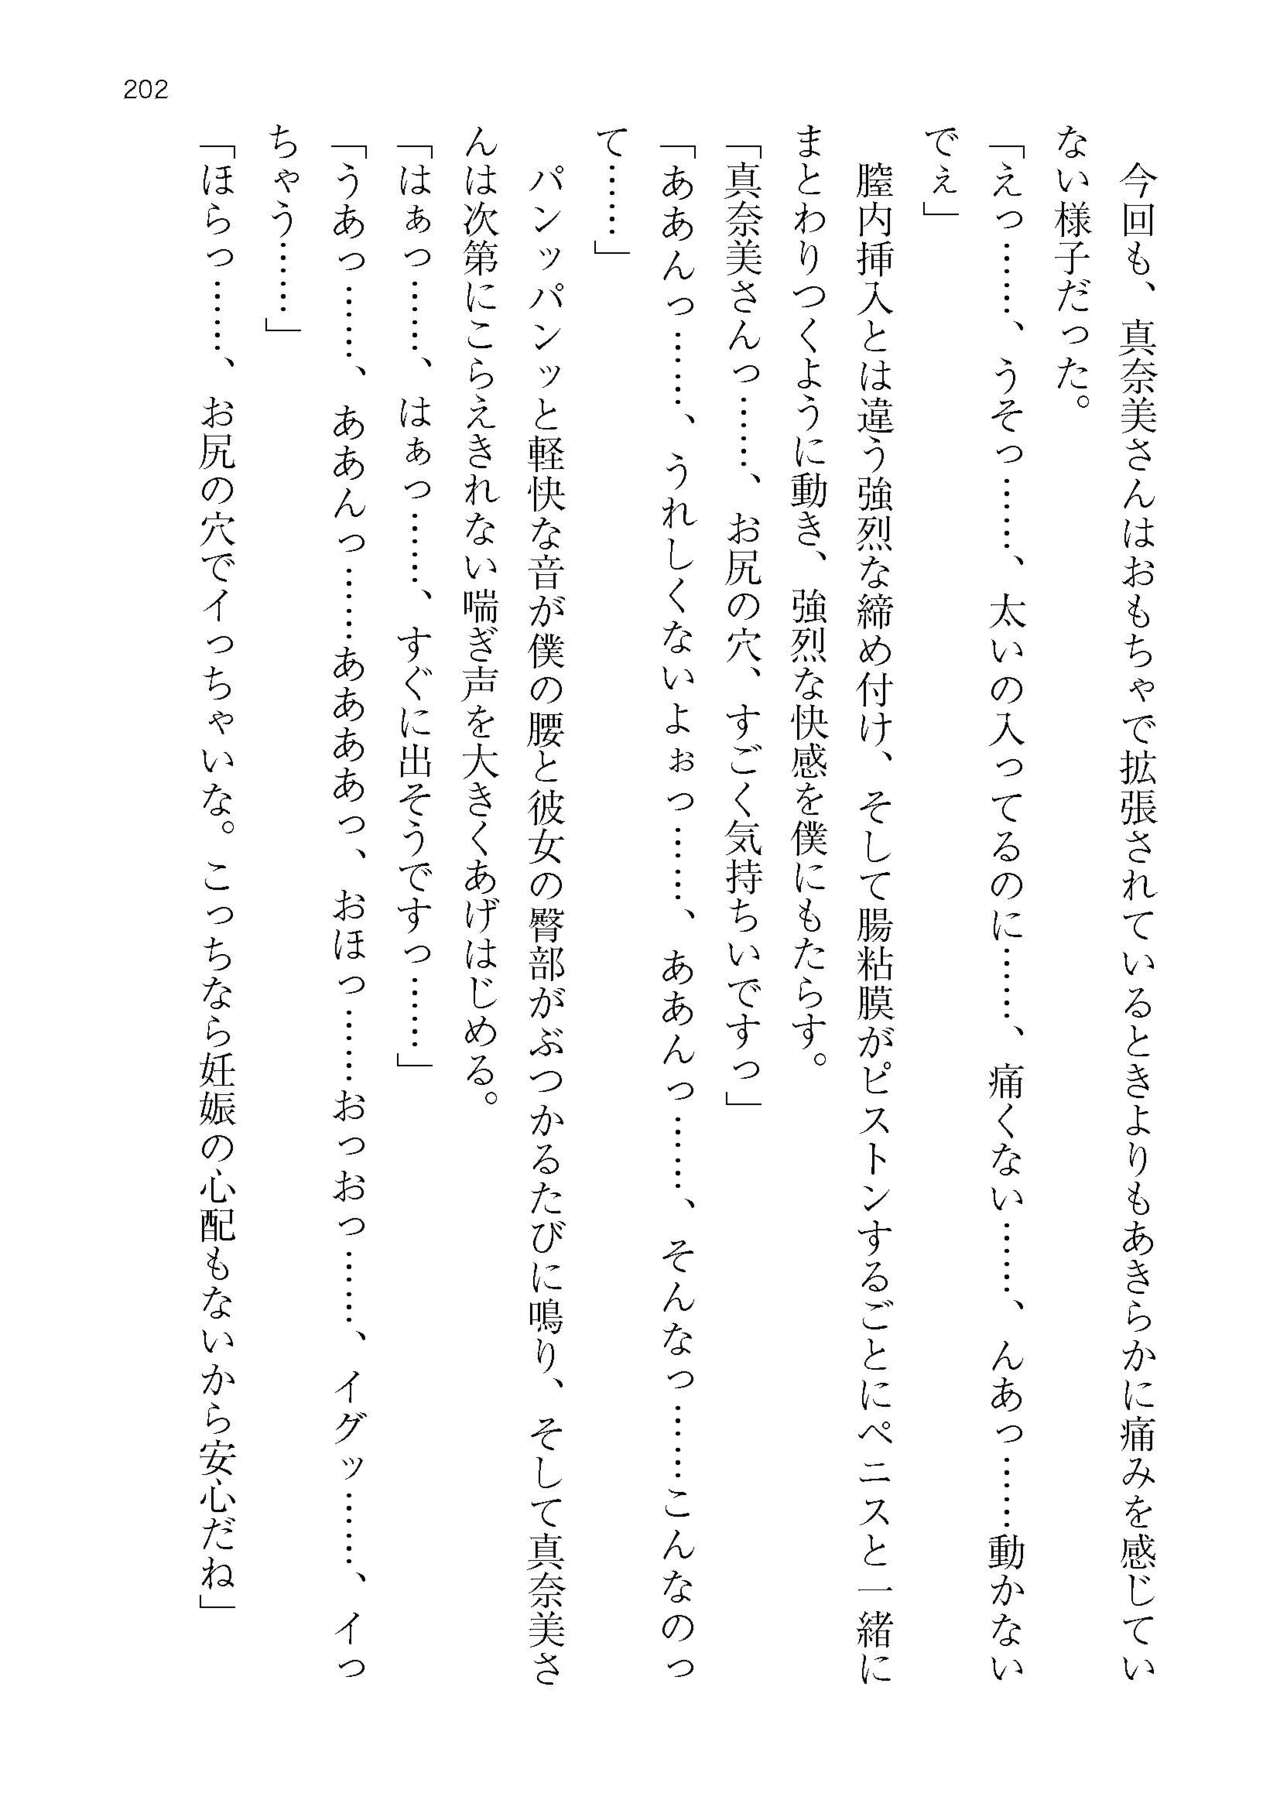 202
　今回も、真奈美さんはおもちゃで拡張されているときよりもあきらかに痛みを感じてい
ない様子だった。
「えっ……、うそっ……、太いの入ってるのに……、痛くない……、んあっ……動かない
でぇ」
　膣内挿入とは違う強烈な締め付け、そして腸粘膜がピストンするごとにペニスと一緒に
まとわりつくように動き、強烈な快感を僕にもたらす。
「真奈美さんっ……、お尻の穴、すごく気持ちいですっ」
「ああんっ……、うれしくないよぉっ……、ああんっ……、そんなっ……こんなのっ
て……」
　パンッパンッと軽快な音が僕の腰と彼女の臀部がぶつかるたびに鳴り、そして真奈美さ
んは次第にこらえきれない喘ぎ声を大きくあげはじめる。
「はぁっ……、はぁっ……、すぐに出そうですっ……」
「うあっ……、ああんっ……ああああっ、おほっ……おっおっ……、イグッ……、イっ
ちゃう……」
「ほらっ……、お尻の穴でイっちゃいな。こっちなら妊娠の心配もないから安心だね」